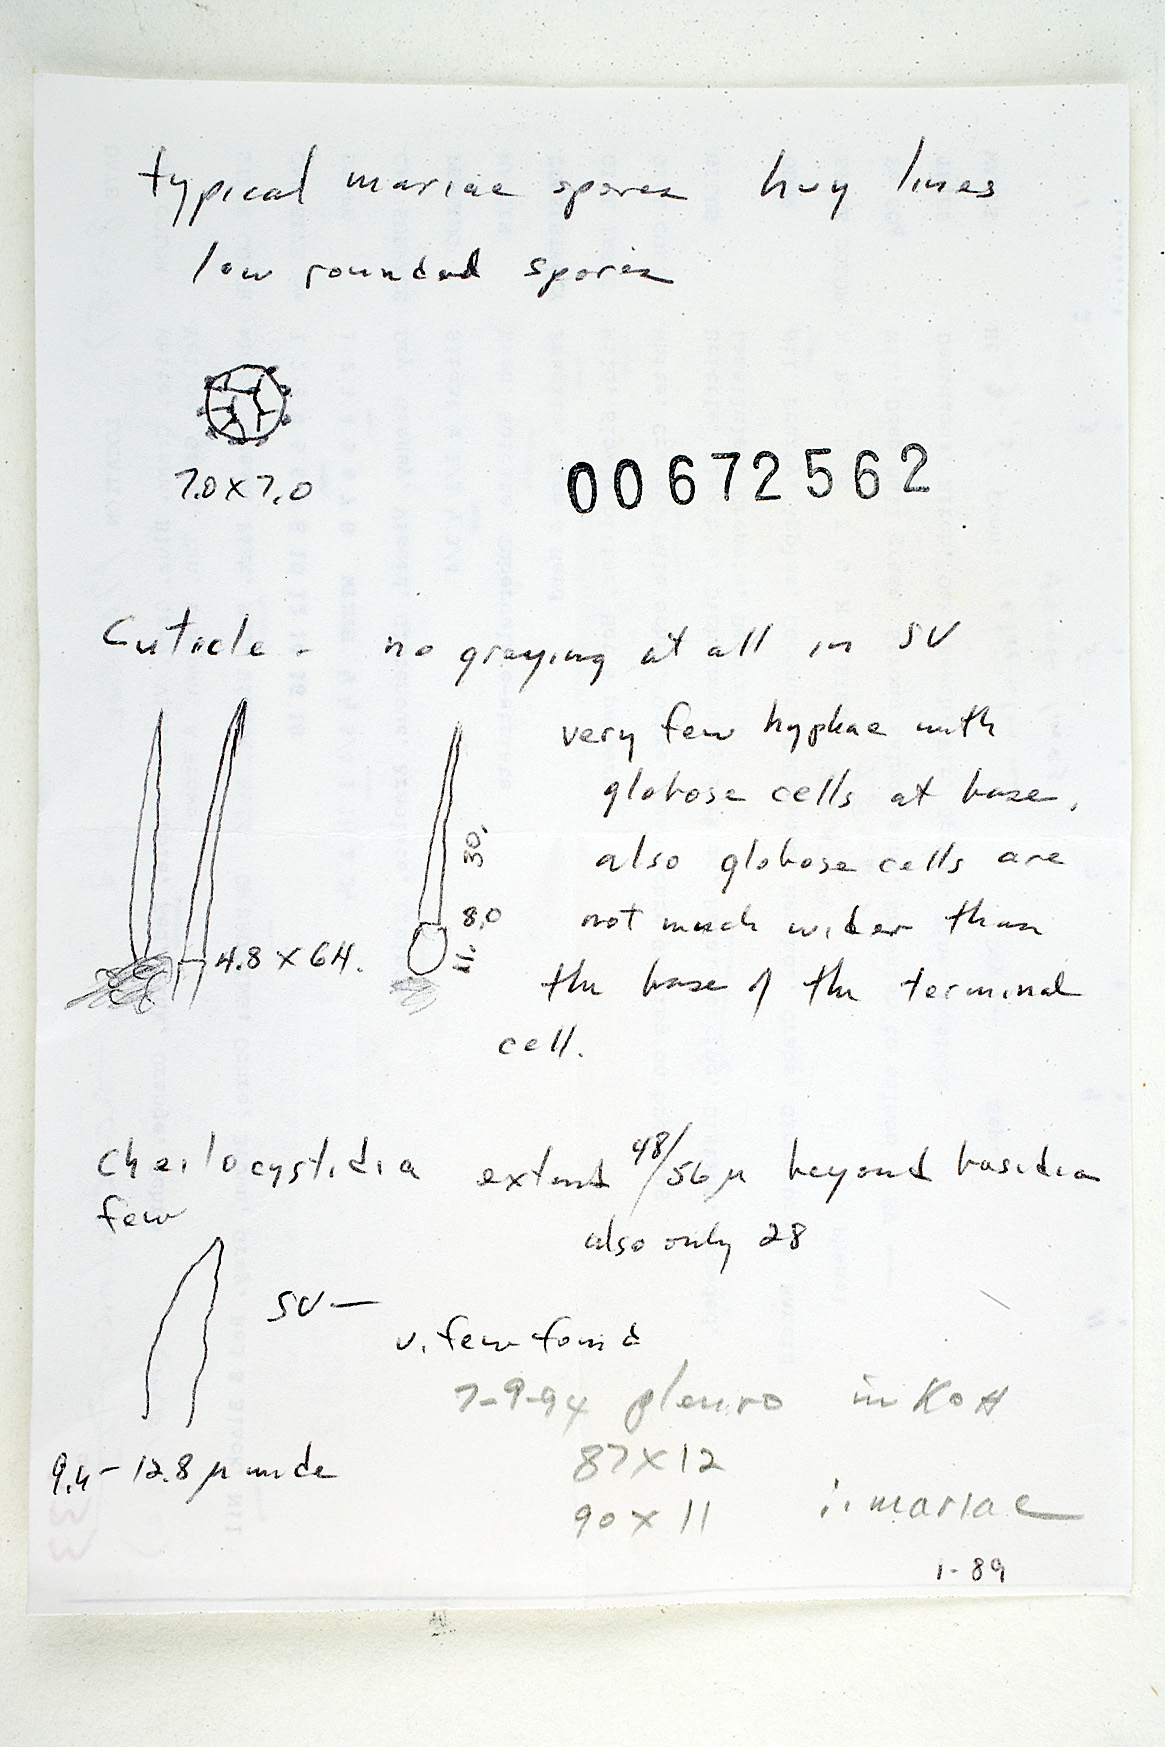 typical mariae spores hvy lines
low rounded spores
7.0 x 7.0
00672562
Cuticle - no graying at all in SV
very few hyphae with
globose cells at base,
30.
also globose cells are
8.0
not much wider than
11.
4.8 x 64.
the base of the terminal
cell.
Cheilocystidia extend 48/56 µ beyond basidia
few
also only 28
SV —
v. few found
7-9-94 pleuro in KOH
87 x 12
9.4 - 12.8 µ wide
90 x 11
∴ mariae
1-89